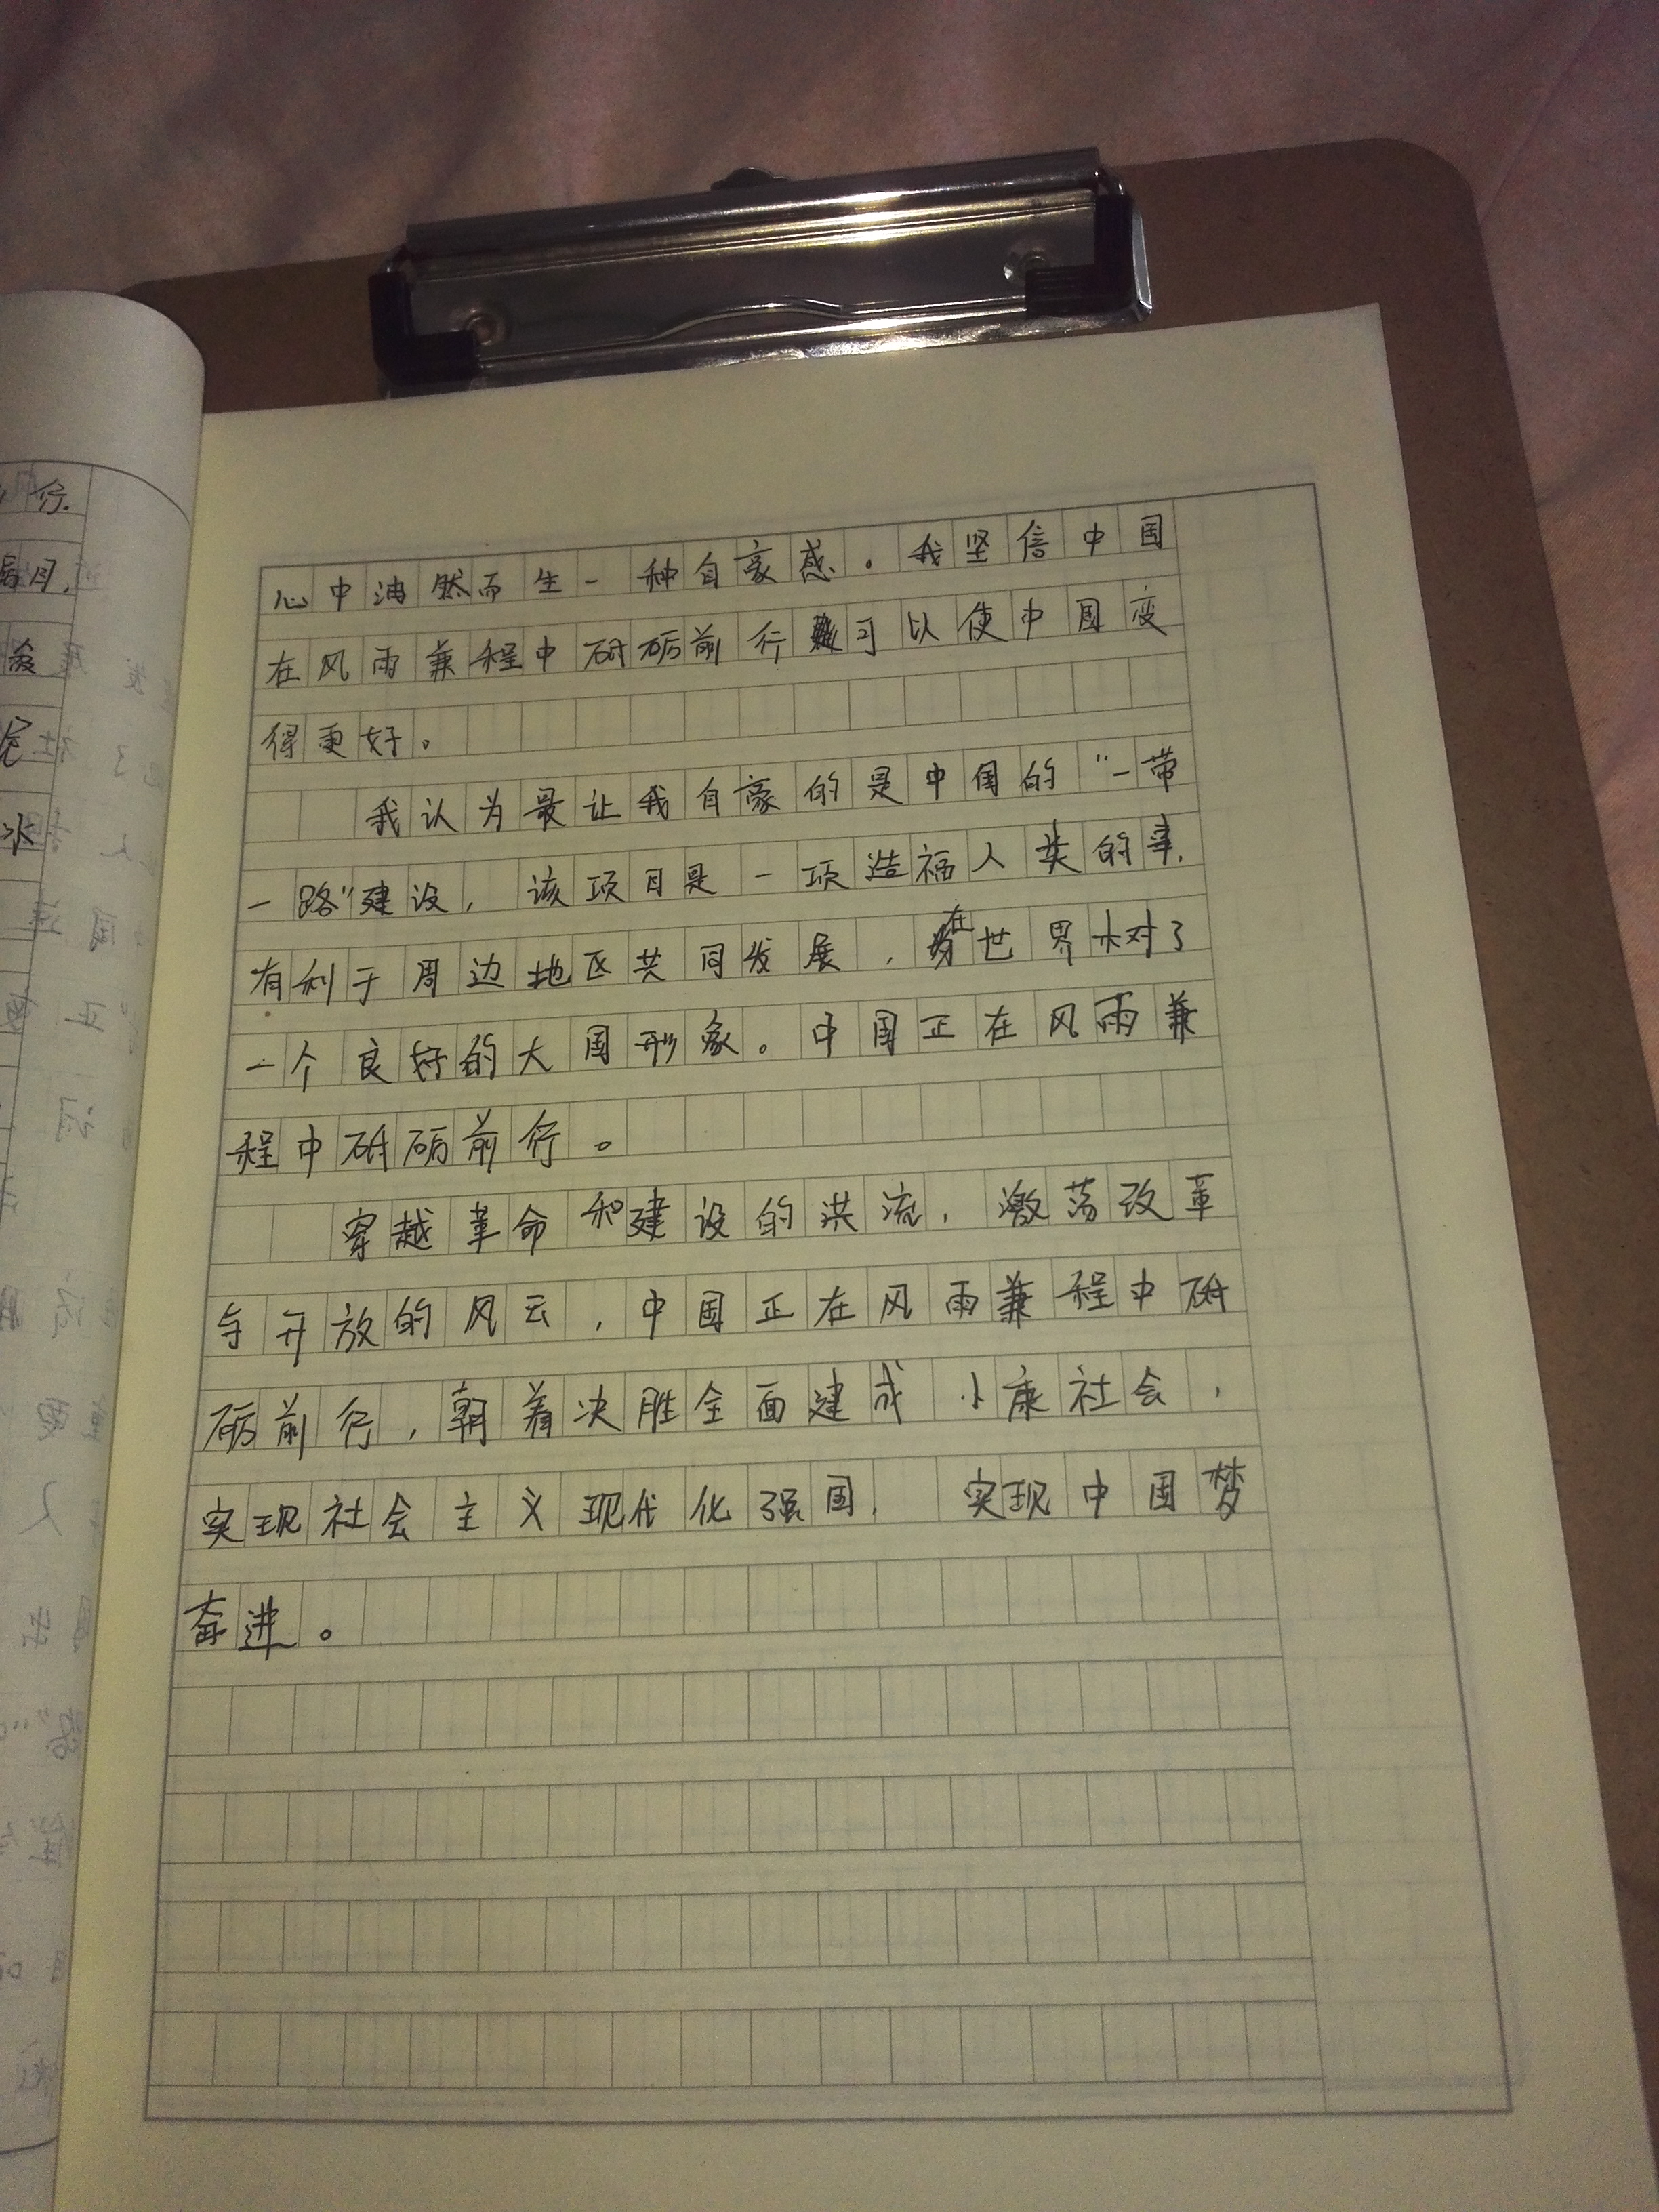 心中油然而生一种自豪感。我坚信中国
在风雨兼程中砥砺前行可以使中国变
得更好。
我认为最让我自豪的是中国的“一带
一路”建设，该项目是一项造福人类的事，
有利于周边地区共同发展，在世界树了
一个良好的大国形象。中国正在风雨兼
程中砥砺前行。
穿越革命和建设的洪流，激荡改革
与开放的风云，中国正在风雨兼程中砥
砺前行，朝着决胜全面建成小康社会，
实现社会主义现代化强国，实现中国梦
奋进。